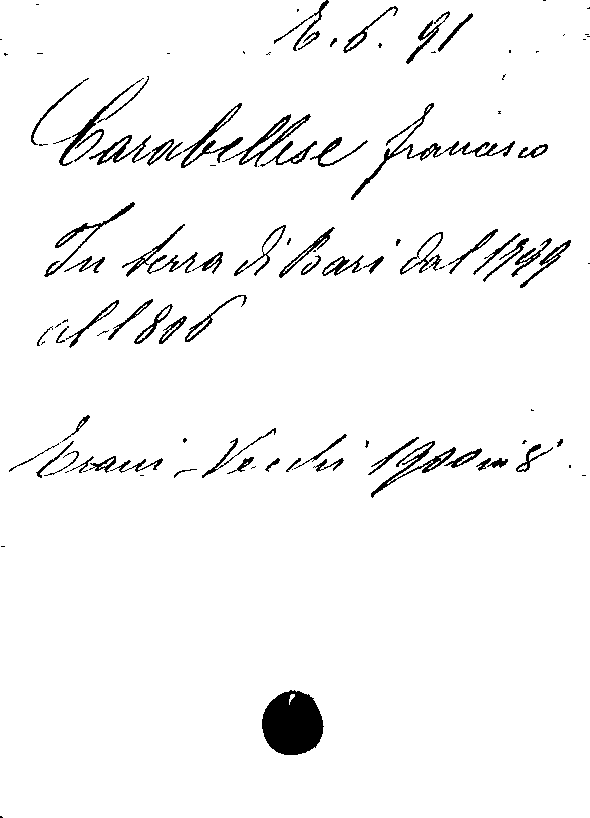 E. 6. 91
Carabellese Francesco
In terra di Bari dal 1799
al 1806
Trani - Vecchi 1900 in 8°